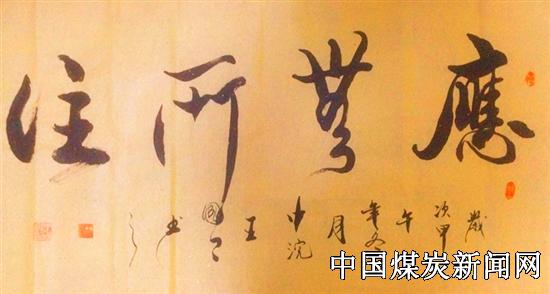 應無所住
歲次甲午年冬月中浣王國书之
中国煤炭新闻网